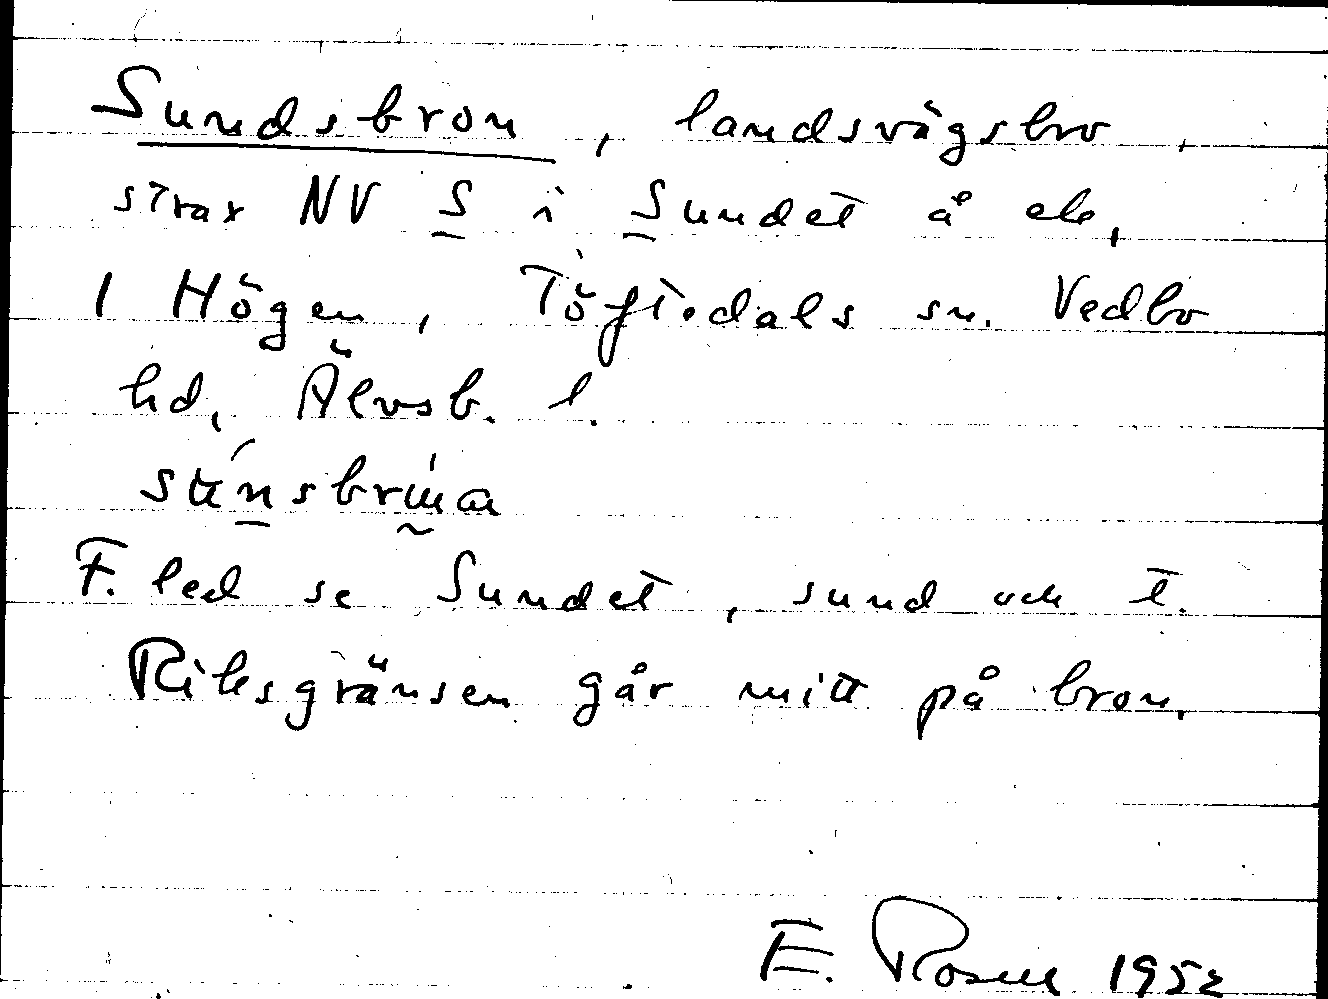 Sundsbron, landsvägsbro,
strax NV S i Sundet å ek,
1 Högen, Töftedals sn. Vedbo
hd, Älvsb. l.
F. led se Sundet, sund och t.
Riksgränsen går mitt på bron.
E. Rosell 1952